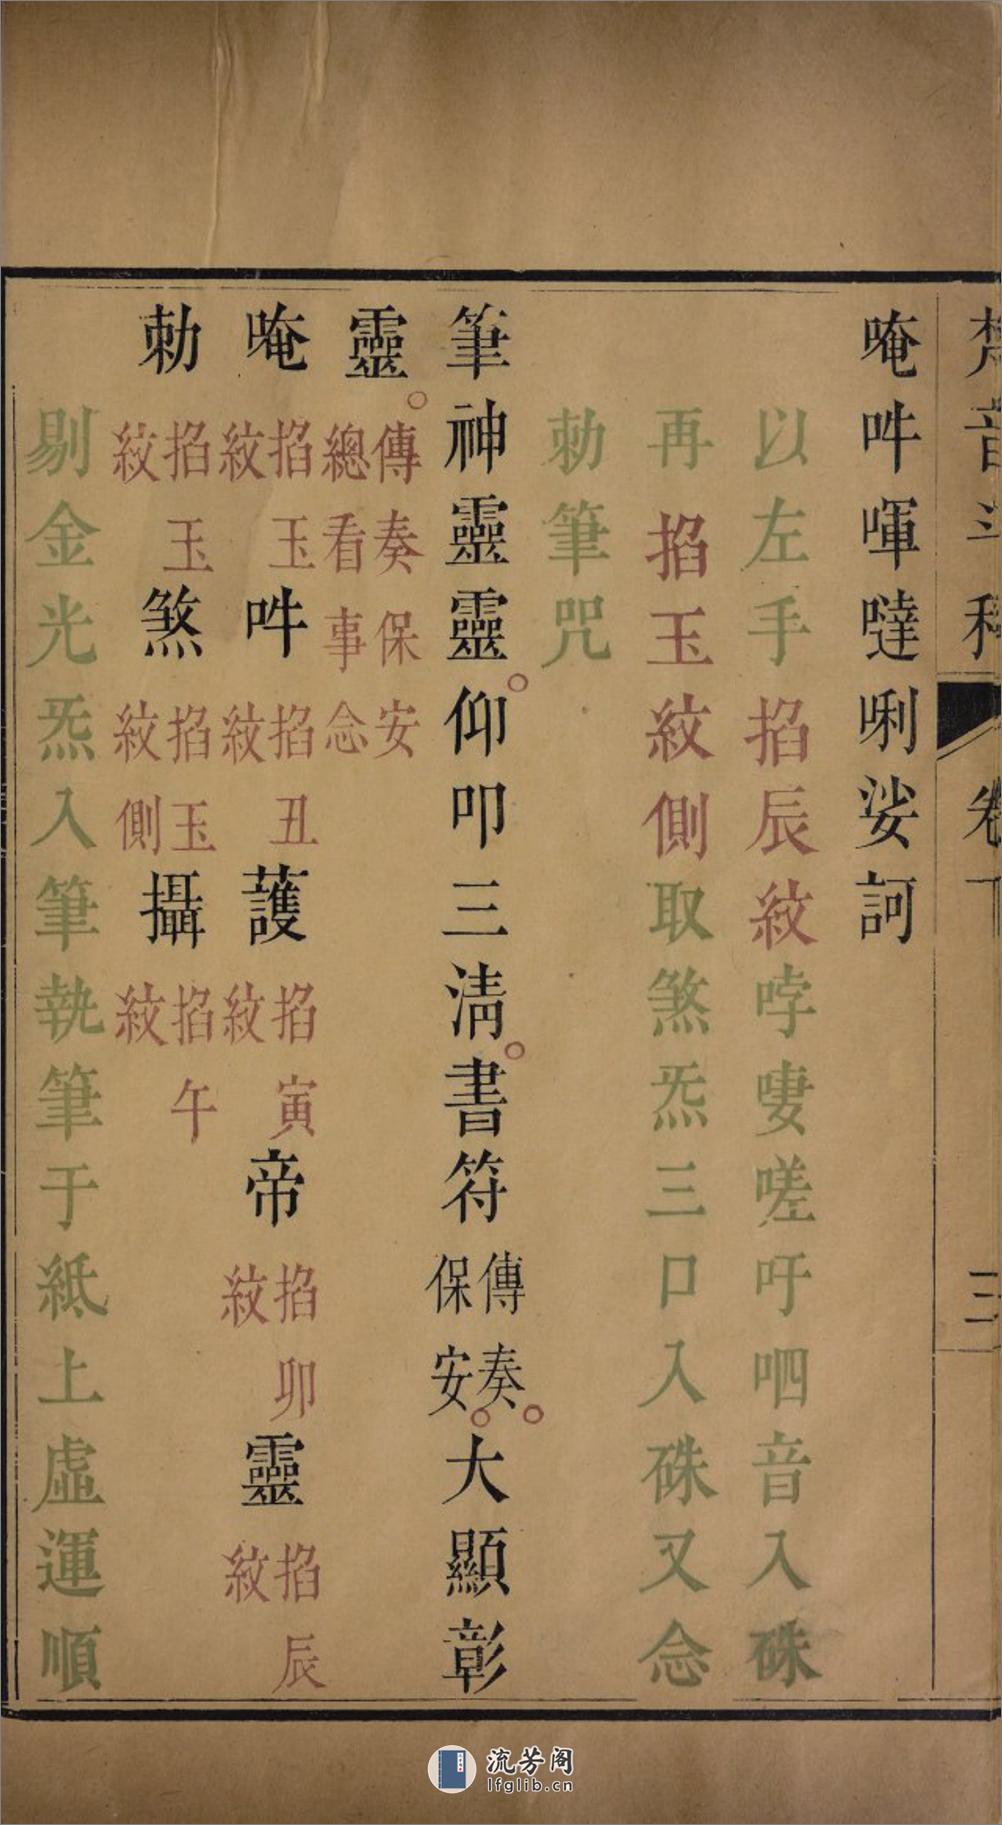 梵音斗科 卷下 三
唵吽㖷噠唎娑訶
以左手掐辰紋哱嘍嗟吁呬音入硃
再掐玉紋側取煞炁三口入硃又念
勅筆咒
筆神靈靈仰叩三淸書符傳奏保安大顯彰
靈傳奏保安總看事念
唵掐玉紋吽掐丑紋護掐寅紋帝掐卯紋靈掐辰紋
勅掐玉紋煞掐玉紋側攝掐午紋
剔金光炁入筆執筆于紙上虛運順
流芳阁
lfglib.cn